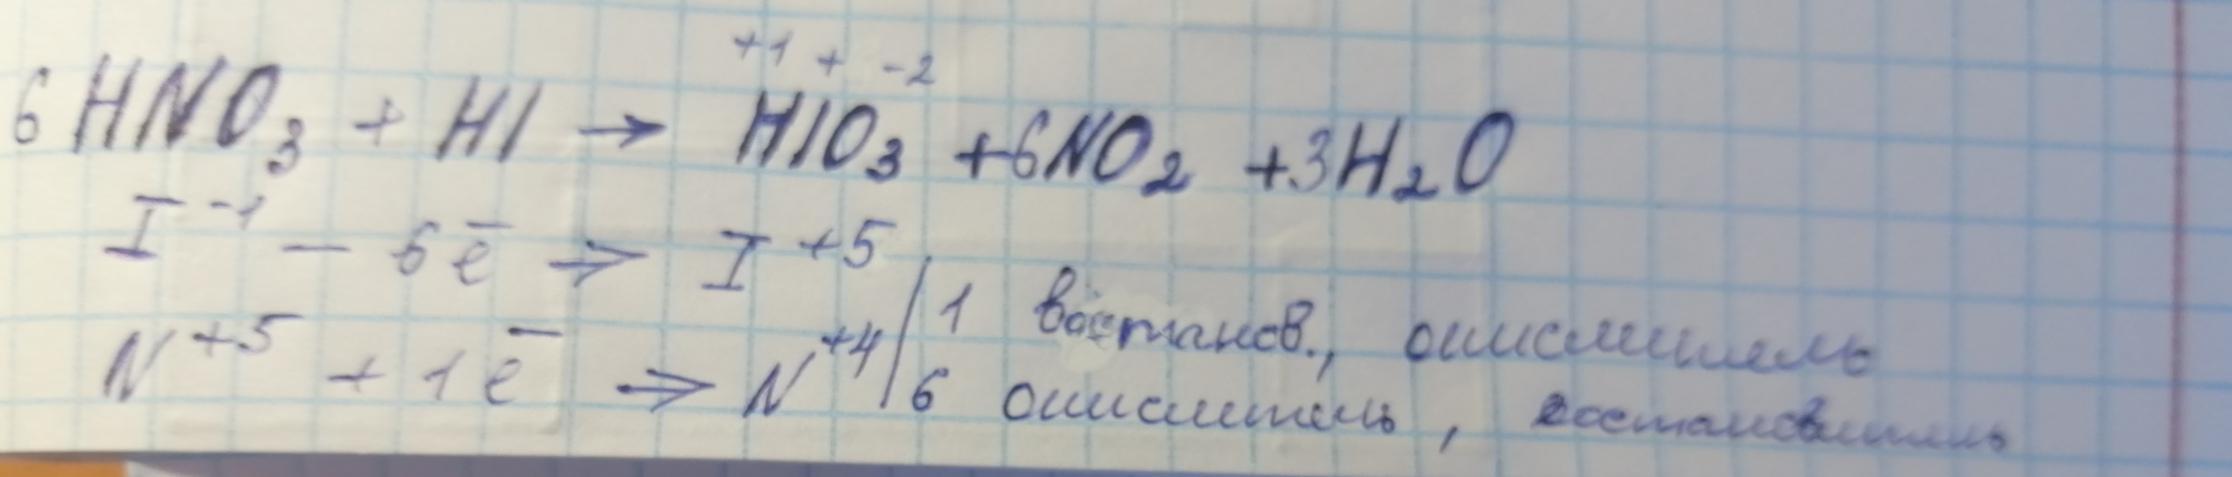 +1 + -2
6HNO₃ + HI → HIO₃ +6NO₂ +3H₂O
I⁻¹ – 6ē → I⁺⁵
1 востанов., окислитель
N⁺⁵ + 1ē → N⁺⁴ 6 окислитель, востановитель